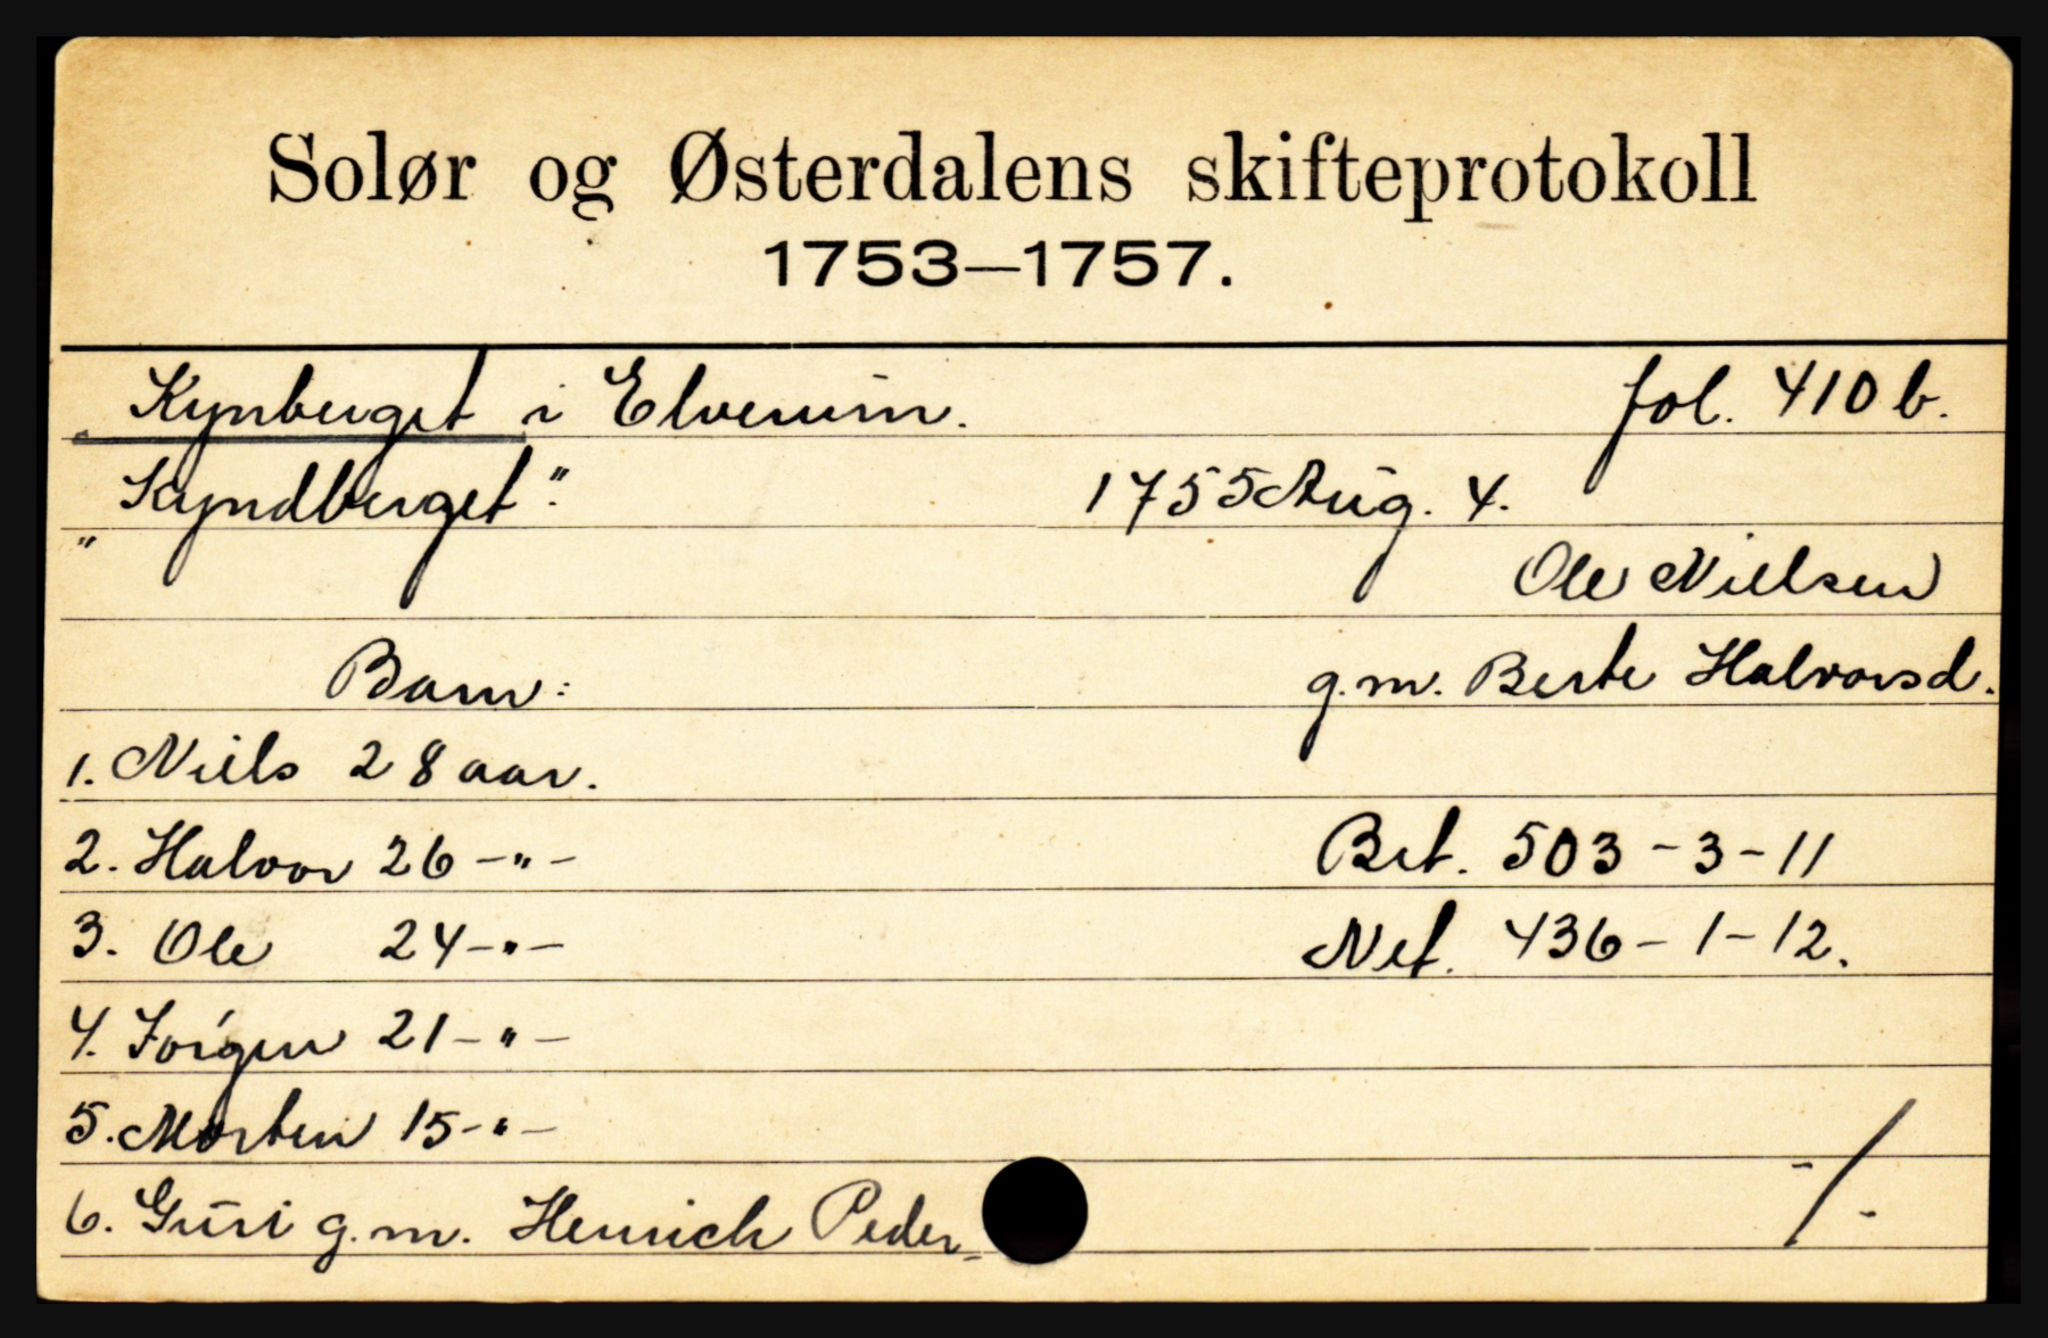 Solør og Østerdalens skifteprotokoll
1753—1757.
Kynberget i Elverum. fol. 410 b.
"Kyndberget". 1755 Aug. 4.
Ole Nielsen
Barn: g.m. Berte Halvorsd.
1. Niels 28 aar.
2. Halvor 26 -"- Brt. 503-3-11
3. Ole 24 -"- Net. 436-1-12.
4. Jørgen 21 -"-
5. Morten 15 -"-
6. Guri g.m. Henrich Peder- -/-